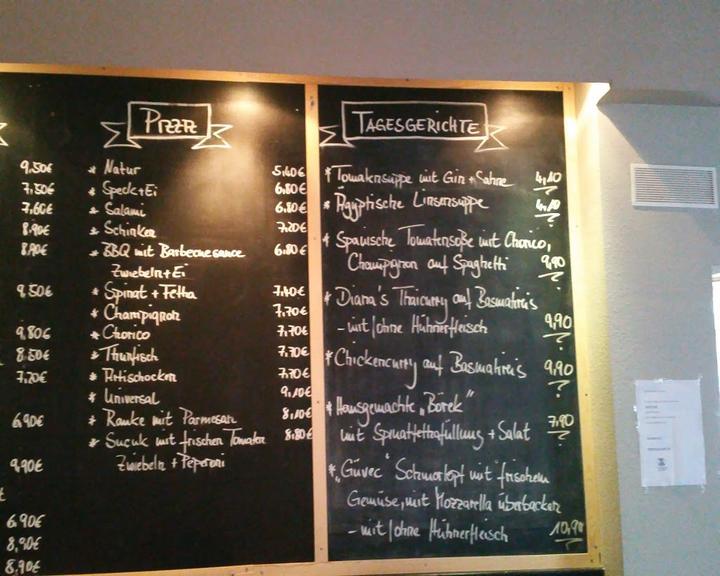 PIZZA
9,50€
7,50€
7,60€
8,90€
8,90€
9,50€
9,80€
8,50€
7,20€
6,90€
9,90€
6,90€
8,90€
8,90€
* Natur 5,40€
* Speck+Ei 6,80€
* Salami 6,80€
* Schinken 7,20€
* BBQ mit Barbecuesauce 6,80€
Zwiebeln+Ei
* Spinat + Fetha 7,40€
* Champignon 7,70€
* Chorico 7,70€
* Thunfisch 7,70€
* Artischocken 7,70€
* Universal 9,10€
* Rauke mit Parmesan 8,10€
* Sucuk mit frischen Tomaten 8,80€
Zwiebeln + Peperoni
TAGESGERICHTE
* Tomatensuppe mit Gin + Sahne 4,10
* Ägyptische Linsensuppe 4,10
* Spanische Tomatensoße mit Chorico,
Champignon auf Spaghetti 9,90
* Diana's Thaicurry auf Basmatireis
- mit/ohne Hühnerfleisch 9,90
* Chickencurry auf Basmatireis 9,90
* Hausgemachte „Börek"
mit Spinatfettafüllung + Salat 7,90
* „Güvec" Schmortopf mit frischem
Gemüse, mit Mozzarella überbacken
- mit/ohne Hühnerfleisch 10,90